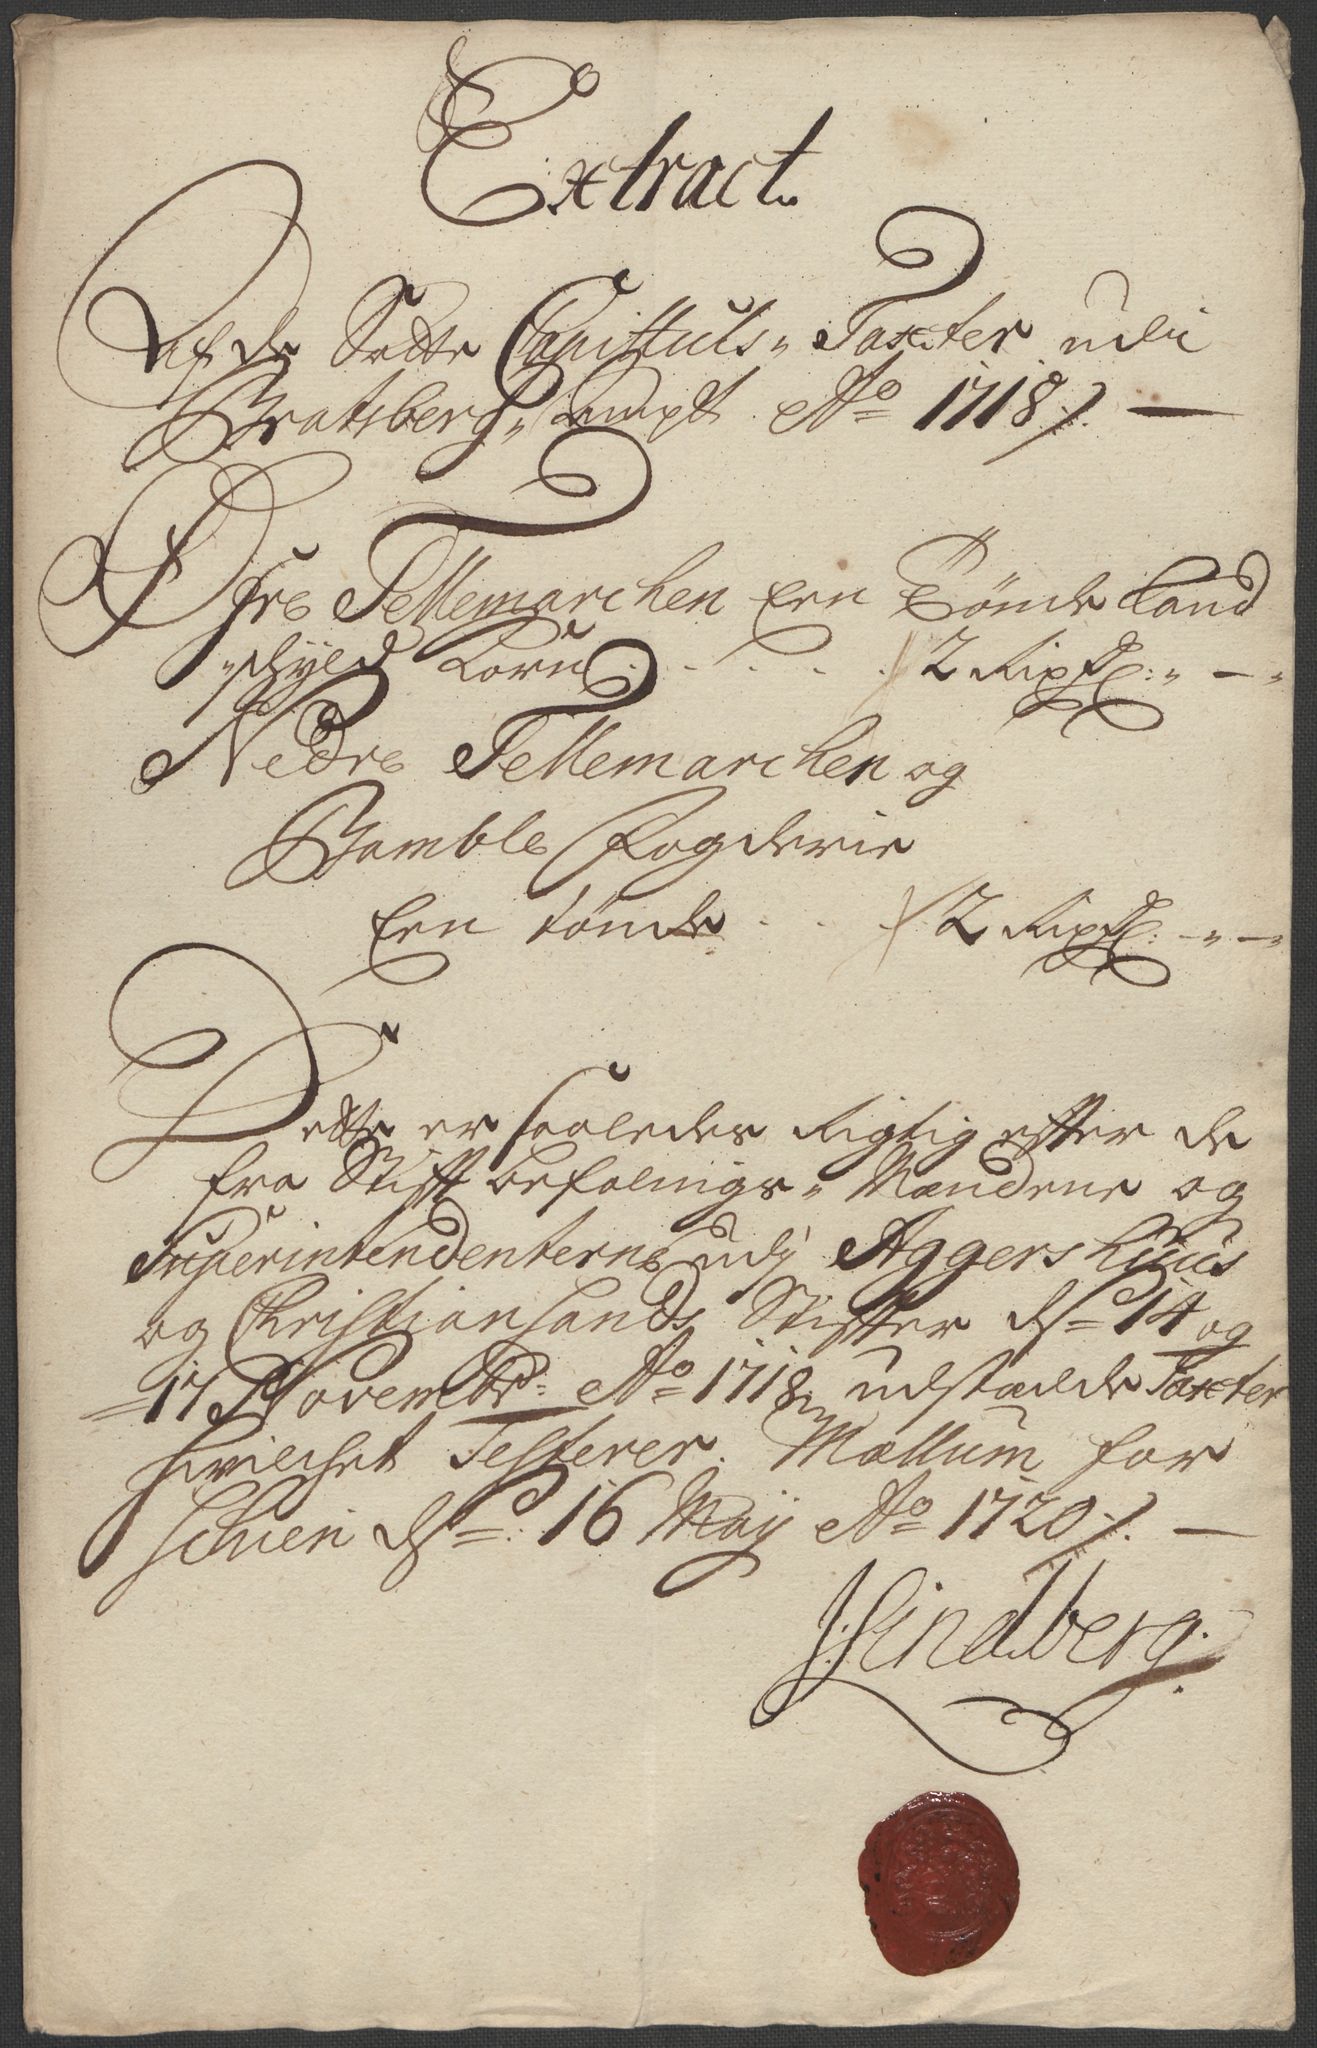 Extract
Af de Satte Capittuls, Taxter udi
Bratsberg, Ampt Ao 1718 /. —
Øfre Tellemarchen Een Tønde Land
schyld Korn . . . . . 2 Rixdl: „ — „
Nedre Tellemarchen og
Bamble Fogderie
Een tønde . . . 2 Rixdl: - „ - „
Dette er saaledes Rigtig efter de
fra Stift befalnings, Mændene og
Superintendenterne udj Aggershuus
og Christiansands Stifter ds 14 og
17 Novembr: Ao 1718 udstædde Taxter
hvilchet Testerer. Mællum for
Schien ds: 16 Maij Ao 1720 /. —
Lindberg.